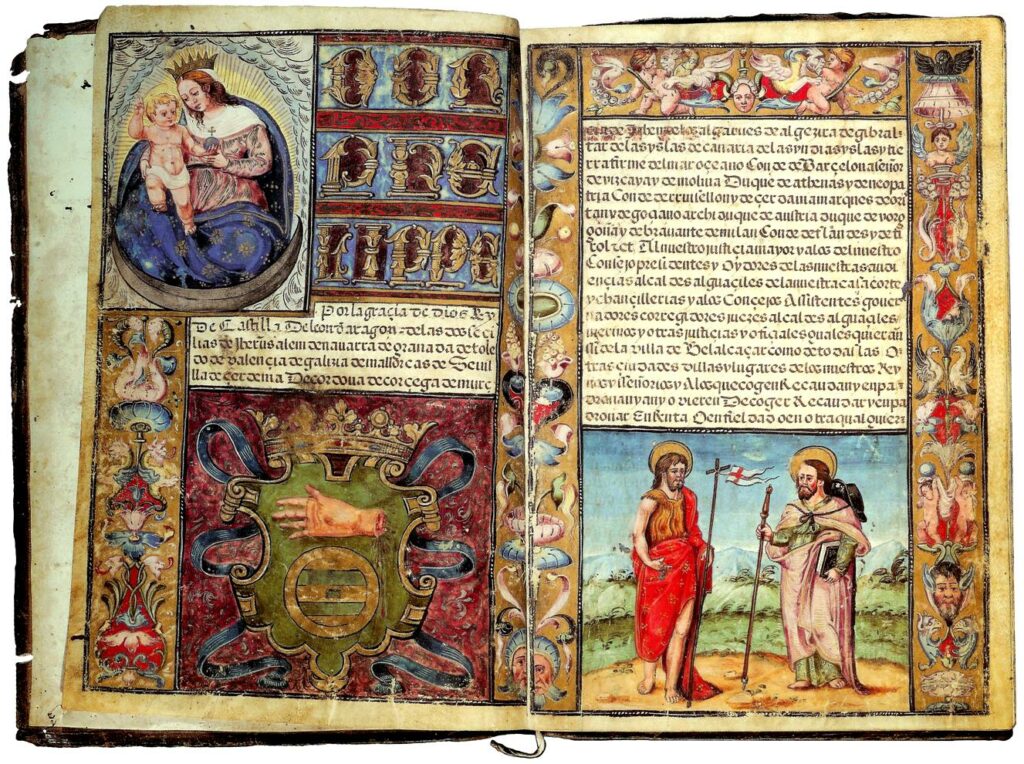 DON
PHE
LIPPE
Por la gracia de dios Rey
De Castilla De leon d aragon de las dos seci
lias de Jherusalem de navarra de granada de tole
do de valencia de galizia de mallorcas de Sevi
lla de cerdenia De cordova de corcega de murc
de Jahen de los algarves de algezira de gibral
tar de las yslas de canaria de las yndias yslas y tie
rra firme del mar oçeano Conde de Barçelona señor
de vizcaya y de molina Duque de athenas y de neopa
tria Conde de rruisellon y de çerdania marques de ori
stan y de goçiano archiduque de austria duque de vorgo
ña y de bravante de milan Conde de flandes y de ti
rol etc. Al nuestro justicia mayor y a los del nuestro
Consejo presidentes y Oydores de las nuestras audi
encias alcaldes alguaciles de la nuestra casa corte
y chancillerias y a los Concejos Assistentes gover
nadores corregidores juezes alcaldes alguaciles
merinos y otras justicias y oficiales quales quier an
si de la villa de Belalcaçar como de todas las O
tras ciudades villas y lugares de los nuestros Rey
nos y señorios y A los que cogen Recaudan y enpa
dronan y an y ovieren De coger Recaudar y enpa
dronar En Renta O en fieldad o en otra qualquier